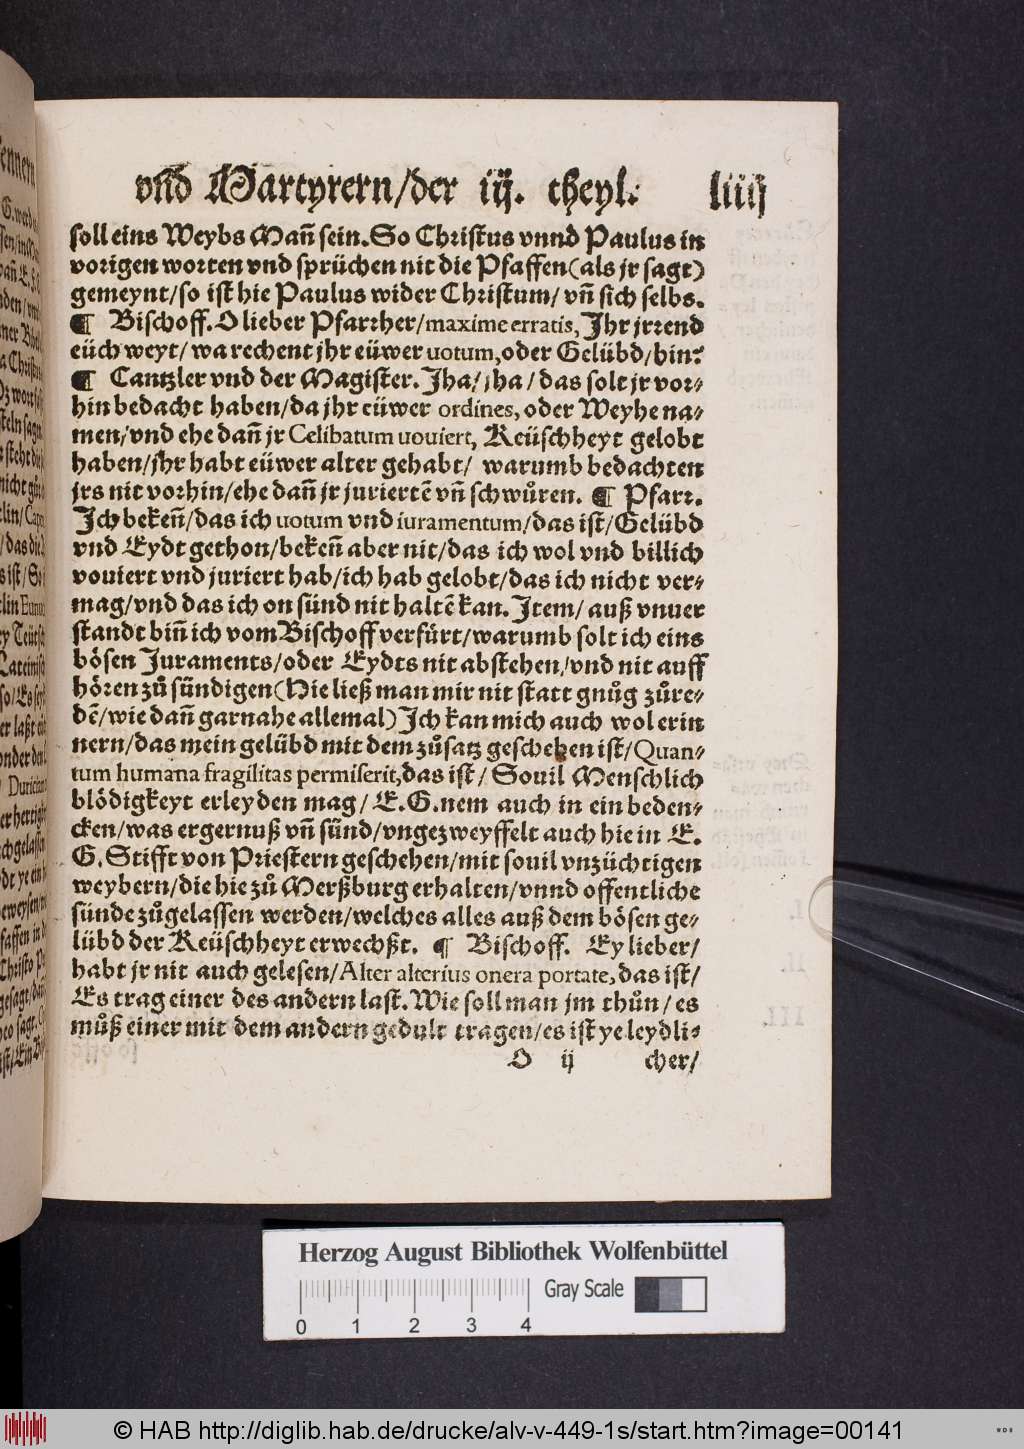 vnd Martyrern/der iij. theyl. liiij
soll eins Weybs Mañ sein. So Christus vnnd Paulus in
vorigen worten vnd sprüchen nit die Pfaffen (als jr sagt)
gemeynt/so ist hie Paulus wider Christum/ vñ sich selbs.
¶ Bischoff. O lieber Pfarrher/maxime erratis, Ihr jrrend
eüch weyt/ wa rechent jhr eüwer uotum, oder Gelübd/hin?
¶ Cantzler vnd der Magister. Jha/jha/das solt jr vor-
hin bedacht haben/da jhr eüwer ordines, oder Weyhe na-
men/vnd ehe dañ jr Celibatum uouiert, Keüschheyt gelobt
haben/jhr habt eüwer alter gehabt/ warumb bedachten
jrs nit vorhin/ehe dañ jr juriertē vñ schwůren. ¶ Pfarr.
Ich bekeñ/das ich uotum vnd iuramentum/das ist/Gelübd
vnd Eydt gethon/bekeñ aber nit/das ich wol vnd billich
vouiert vnd juriert hab/ich hab gelobt/das ich nicht ver-
mag/vnd das ich on sünd nit haltē kan. Item/ auß vnuer
standt biñ ich vom Bischoff verfürt/warumb solt ich eins
bösen Juraments/oder Eydts nit abstehen/vnd nit auff
hören zů sündigen (Hie ließ man mir nit statt gnůg zůre-
dē/wie dañ gar nahe allemal) Ich kan mich auch wol erin
nern/das mein gelübd mit dem zůsatz geschehen ist/Quan-
tum humana fragilitas permiserit, das ist/ Souil Menschlich
blödigkeyt erleyden mag/ E.G. nem auch in ein beden-
cken/was ergernuß vñ sünd/vngezweyffelt auch hie in E.
G. Stifft von Priestern geschehen/mit souil vnzüchtigen
weybern/die hie zů Merßburg erhalten/vnnd offentliche
sünde zůgelassen werden/welches alles auß dem bösen ge-
lübd der Keüschheyt erwechßt. ¶ Bischoff. Ey lieber/
habt jr nit auch gelesen/Alter alterius onera portate, das ist/
Es trag einer des andern last. Wie soll man jm thůn/ es
můß einer mit dem andern gedult tragen/es ist ye leydli-
O ij cher/
Herzog August Bibliothek Wolfenbüttel
Gray Scale
0 1 2 3 4
© HAB http://diglib.hab.de/drucke/alv-v-449-1s/start.htm?image=00141